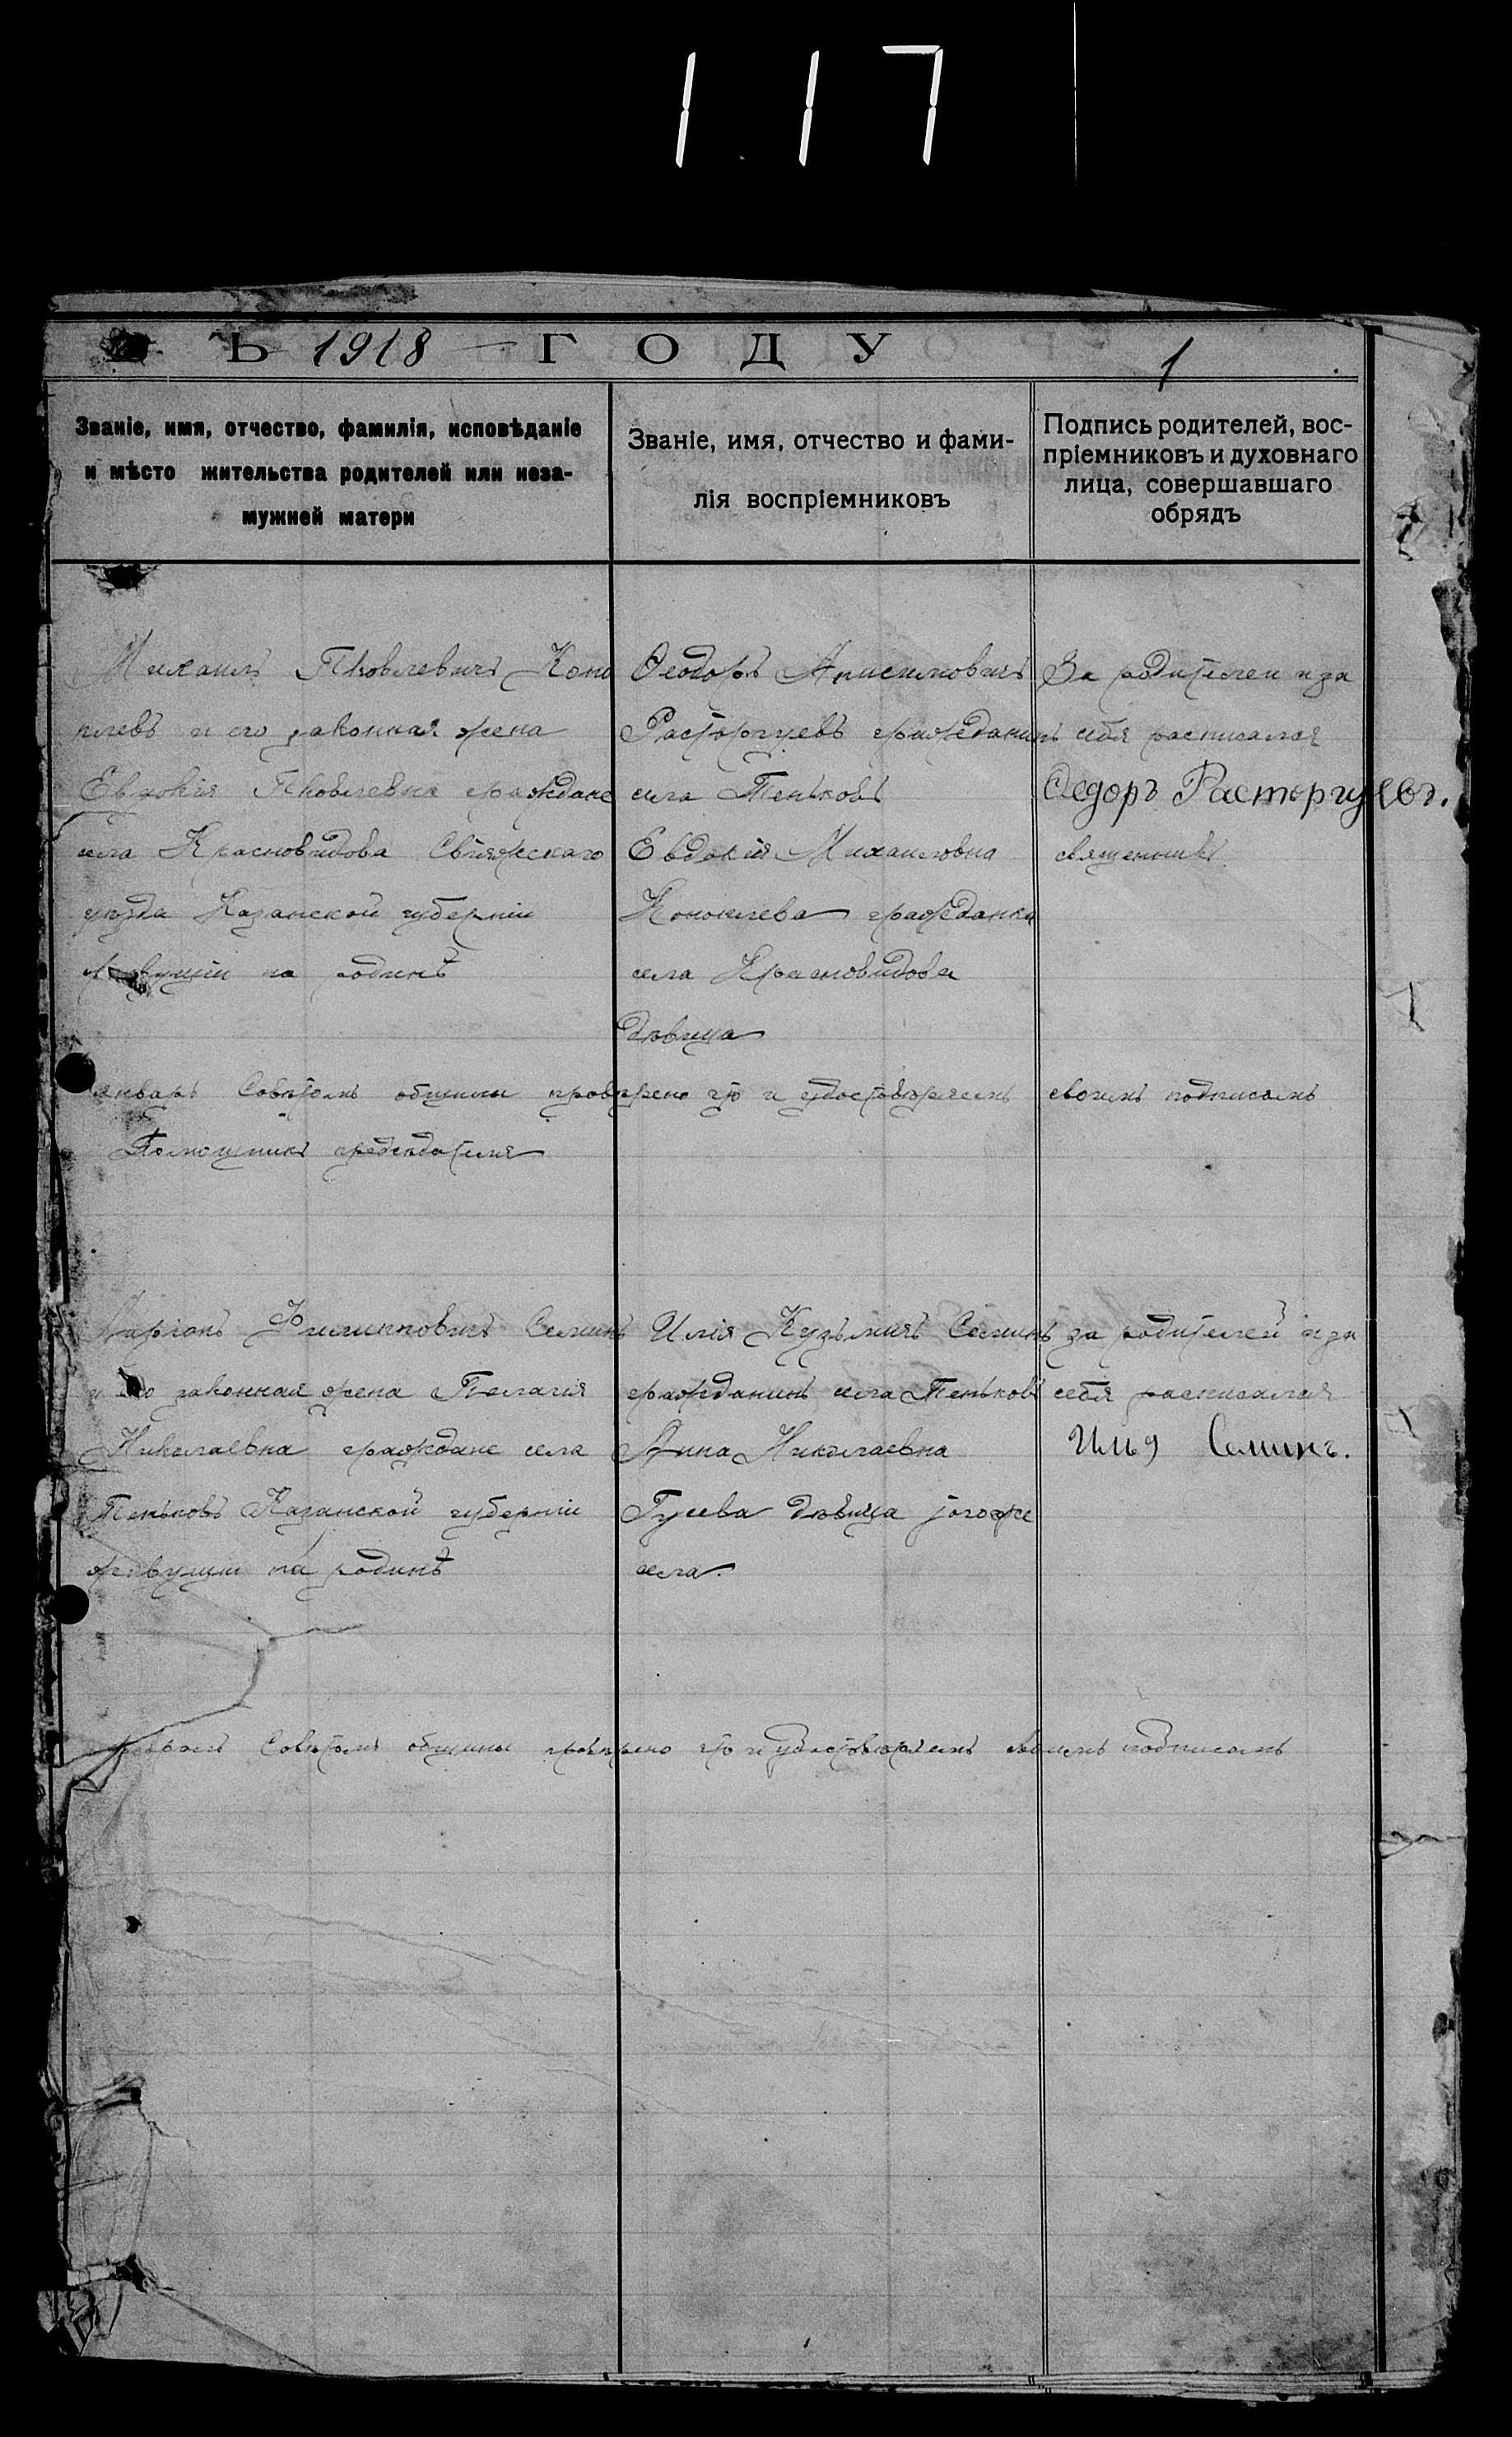 117
Ъ 1918 ГОДУ
1
Званіе, имя, отчество, фамилія, исповѣданіе
и мѣсто жительства родителей или неза-
мужней матери
Званіе, имя, отчество и фами-
лія воспріемниковъ
Подпись родителей, вос-
пріемниковъ и духовнаго
лица, совершавшаго
обрядъ
Михаилъ Яковлевичъ Коно
плевъ и его законная жена
Евдокія Яковлевна граждане
села Красновидова Свіяжскаго
уѣзда Казанской губерніи
на родинѣ
Феодоръ Анисимовичъ
Расторгуевъ гражданинъ
села Теньковъ
Евдокія Михаиловна
Коноплева гражданка
села Красновидова
дѣвица
За родителей и за
себя расписался
Федоръ Расторгуевъ.
священникъ
январь Совѣтомъ общины провѣрено что и удостовѣряемъ своимъ подписомъ
Помощникъ председателя
Ларіонъ Филипповичъ Семинъ
и его законная жена Пелагия
Николаевна граждане села
Теньковъ Казанской губерніи
живущіи на родинѣ
Илія Кузьмичъ Семинъ
гражданинъ села Теньковъ
Анна Николаевна
Гусева дѣвица тогоже
села.
за родителей и за
себя расписался
Илья Семинъ.
Совѣтомъ общины провѣрено что и удостовѣряемъ своимъ подписомъ